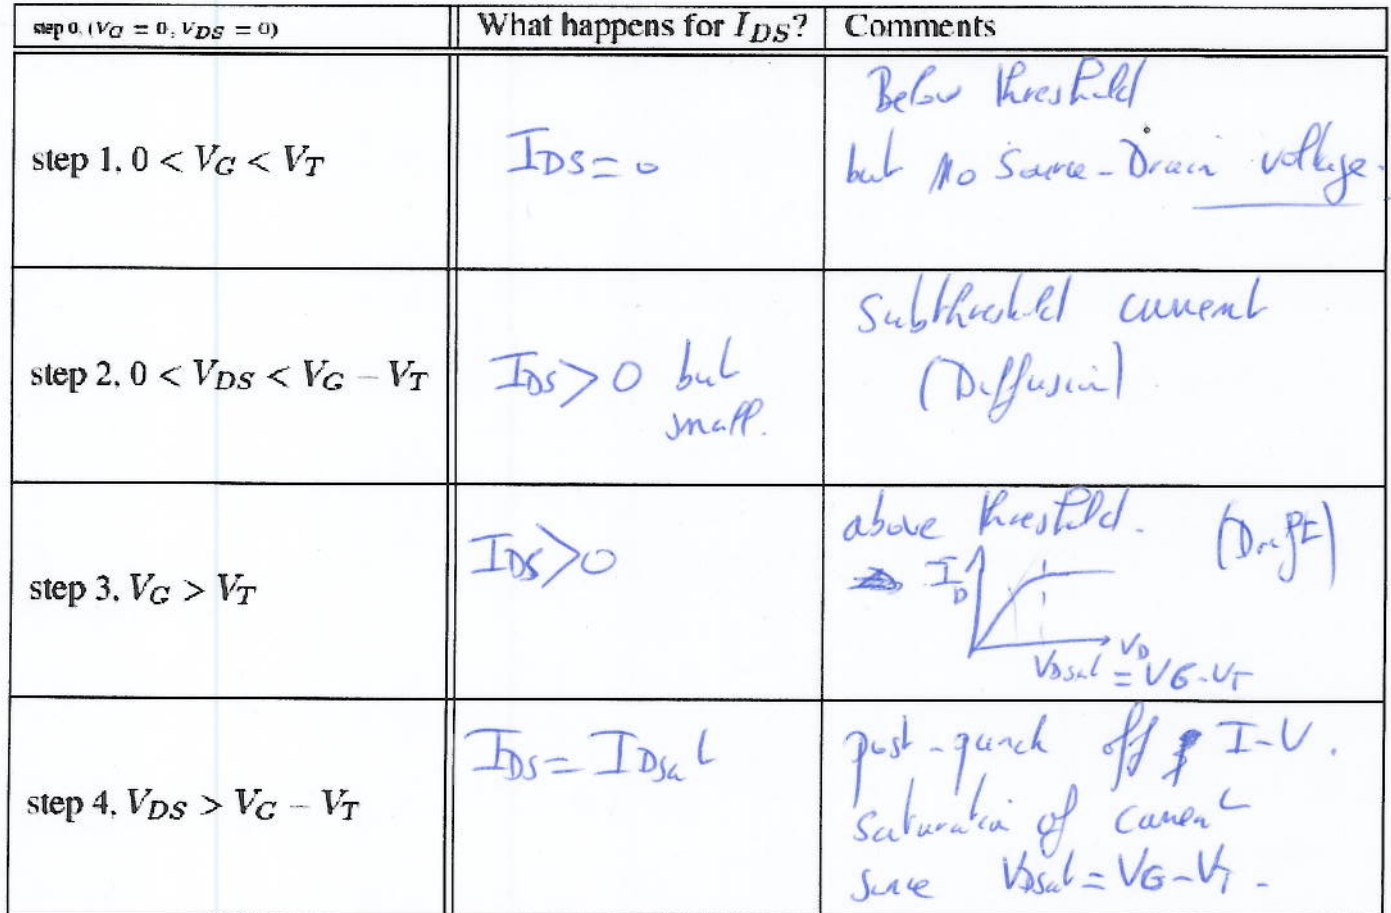 step 0. (V_G = 0, V_DS = 0) What happens for I_DS? Comments
step 1. 0 < V_G < V_T
I_DS = 0
Below threshold
but no Source-Drain voltage.
step 2. 0 < V_DS < V_G − V_T
I_DS > 0 but
small.
Subthreshold current
(Diffusion)
step 3. V_G > V_T
I_DS > 0
above threshold. (Drift)
I_D
V_D
V_Dsat = V_G - V_T
step 4. V_DS > V_G − V_T
I_DS = I_Dsat
post-punch off I-V.
saturation of current
since V_Dsat = V_G - V_T.